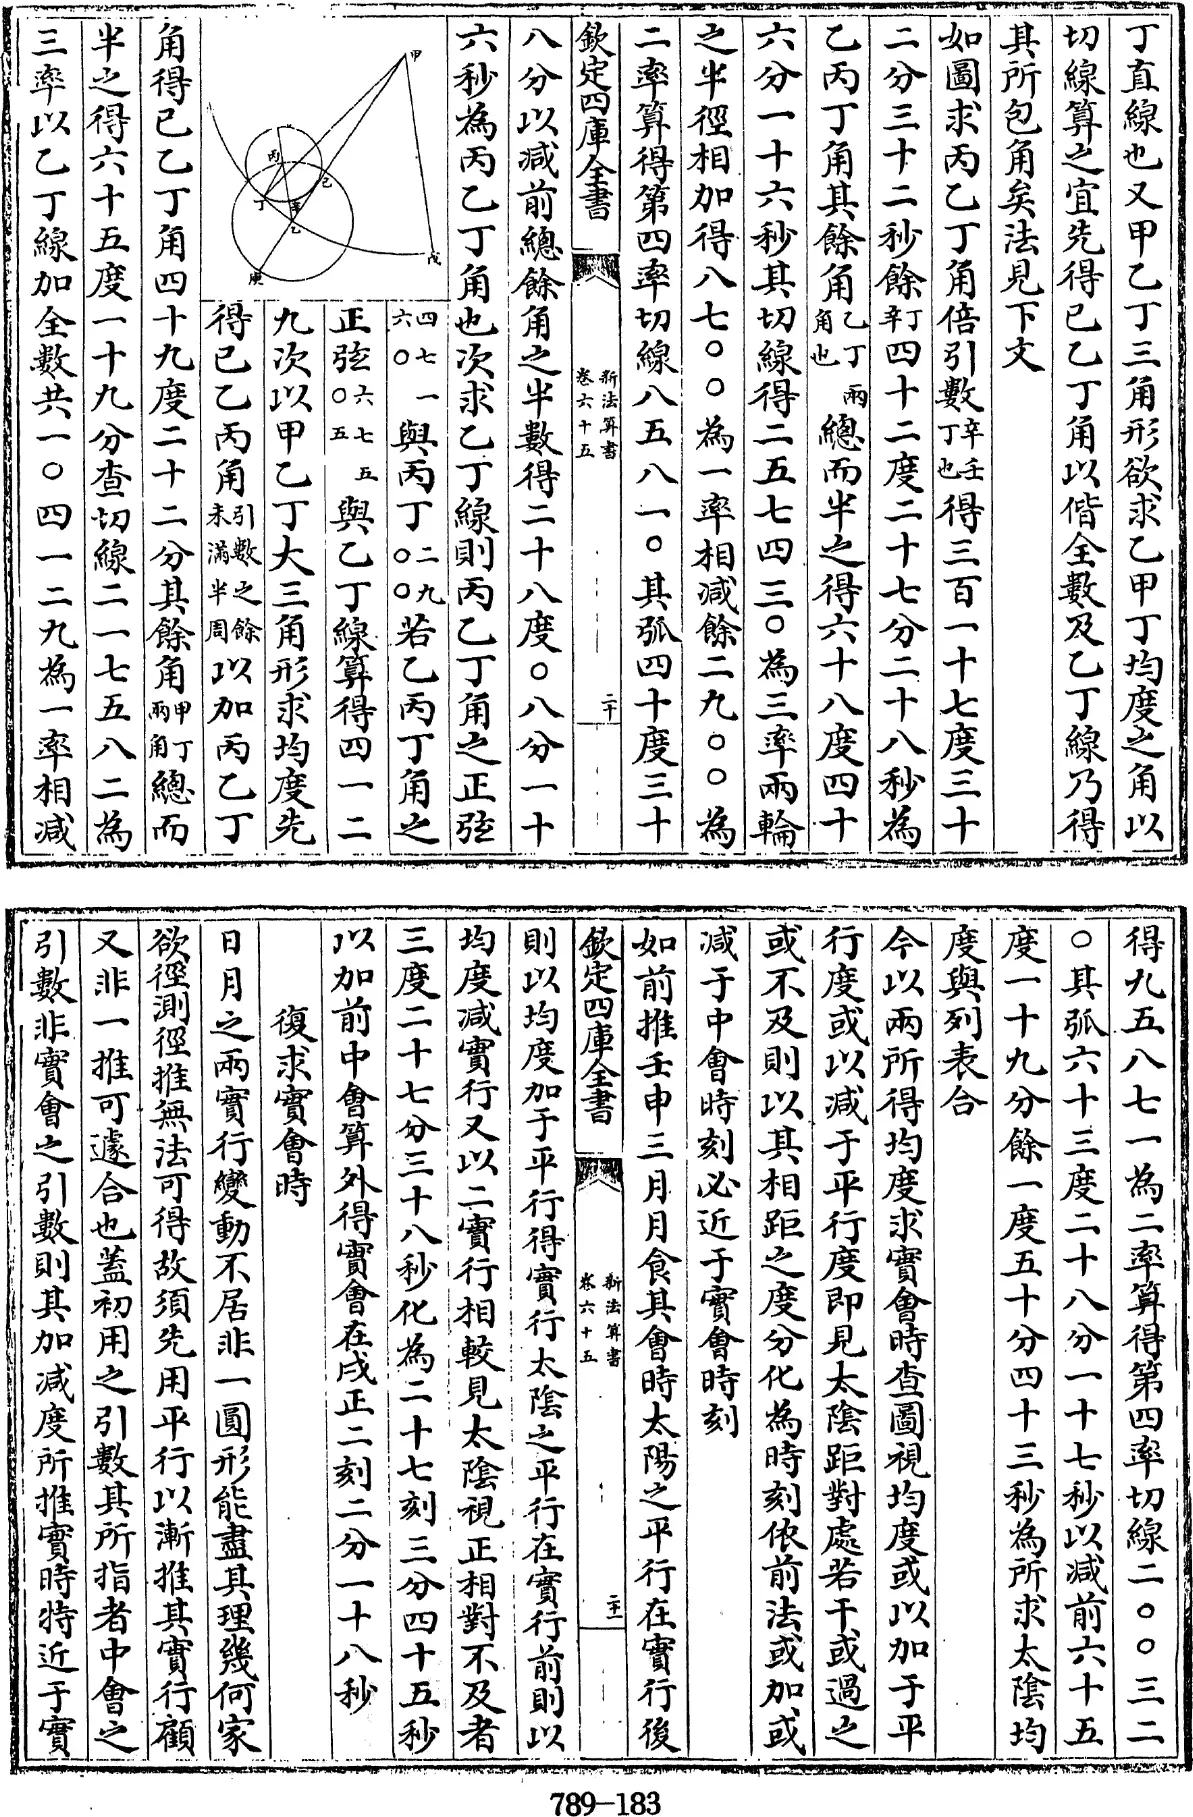 丁直線也又甲乙丁三角形欲求乙甲丁均度之角以
切線算之宜先得已乙丁角以偕全數及乙丁線乃得
其所包角矣法見下文
如圖求丙乙丁角倍引數辛壬丁也得三百一十七度三十
二分三十二秒餘丁辛四十二度二十七分二十八秒為
乙丙丁角其餘角乙丁兩角也總而半之得六十八度四十
六分一十六秒其切線得二五七四三〇為三率兩輪
之半徑相加得八七〇〇為一率相減餘二九〇〇為
二率算得第四率切線八五八一〇其弧四十度三十
欽定四庫全書
新法算書
卷六十五
二十
八分以減前總餘角之半數得二十八度〇八分一十
六秒為丙乙丁角也次求乙丁線則丙乙丁角之正弦
甲
丙
已
丁
辛
乙
戊
庚
四七一六〇與丙丁二九〇〇若乙丙丁角之
正弦六七五〇五與乙丁線算得四一二
九次以甲乙丁大三角形求均度先
得已乙丙角引數之餘未滿半周以加丙乙丁
角得已乙丁角四十九度二十二分其餘角甲丁兩角總而
半之得六十五度一十九分查切線二一七五八二為
三率以乙丁線加全數共一〇四一二九為一率相減
得九五八七一為二率算得第四率切線二〇〇三二
〇其弧六十三度二十八分一十七秒以減前六十五
度一十九分餘一度五十分四十三秒為所求太陰均
度與列表合
今以兩所得均度求實會時查圖視均度或以加于平
行度或以減于平行度即見太陰距對處若干或過之
或不及則以其相距之度分化為時刻依前法或加或
減于中會時刻必近于實會時刻
如前推壬申三月月食其會時太陽之平行在實行後
欽定四庫全書
新法算書
卷六十五
二十一
則以均度加于平行得實行太陰之平行在實行前則以
均度減實行又以二實行相較見太陰視正相對不及者
三度二十七分三十八秒化為二十七刻三分四十五秒
以加前中會算外得實會在戌正二刻二分一十八秒
復求實會時
日月之兩實行變動不居非一圓形能盡其理幾何家
欲徑測徑推無法可得故須先用平行以漸推其實行顧
又非一推可遽合也蓋初用之引數其所指者中會之
引數非實會之引數則其加減度所推實時特近于實
789-183